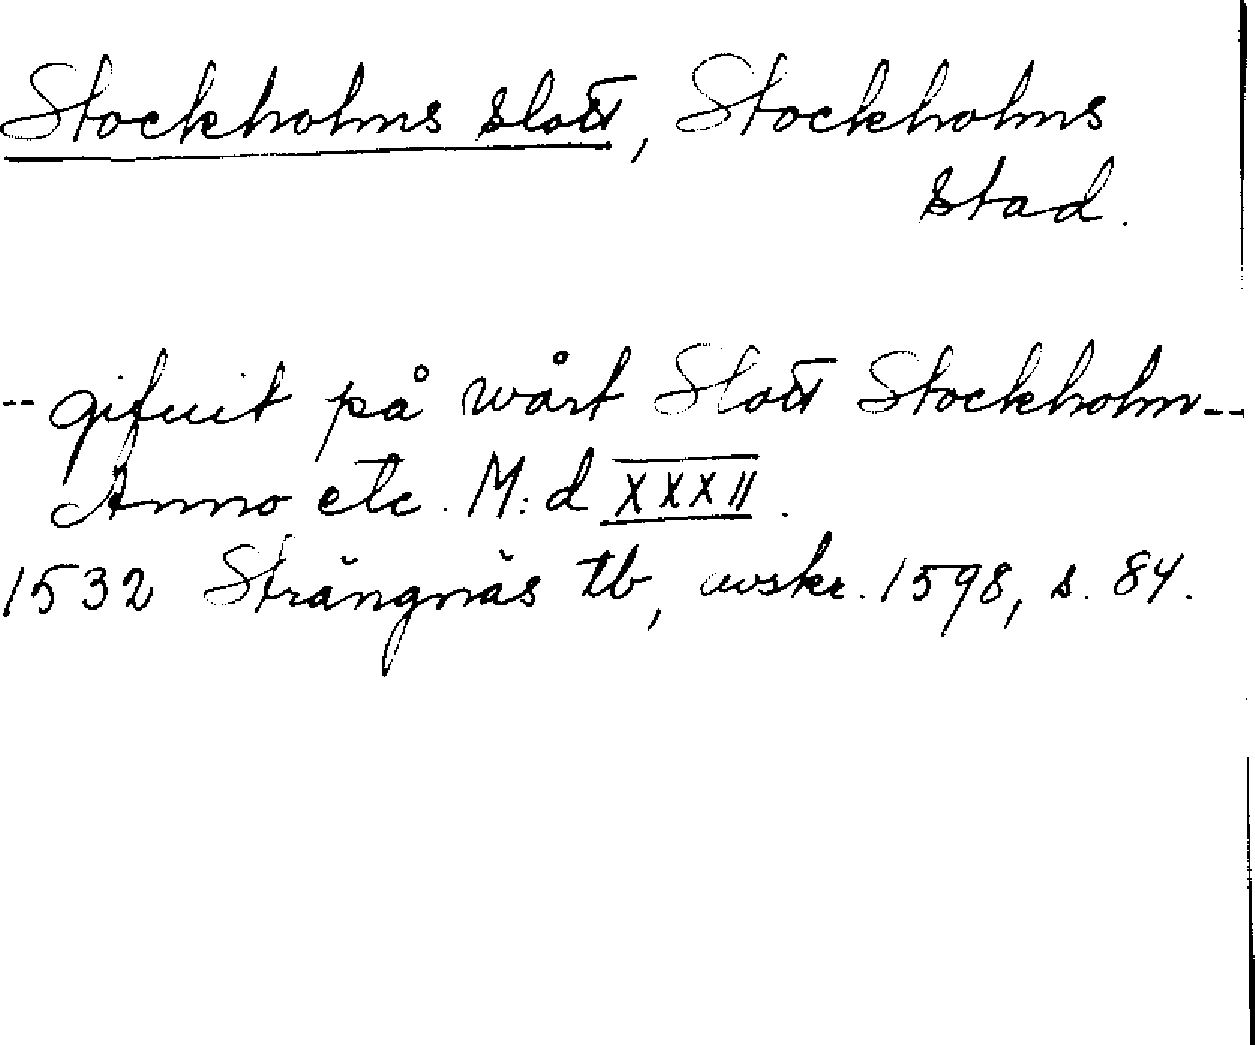 Stockholms slott, Stockholms
stad.
-- gifuit på wårt Slott Stockholm --
Anno etc. M: d XXXII.
1532 Strängnäs tb, avskr. 1598, s. 84.